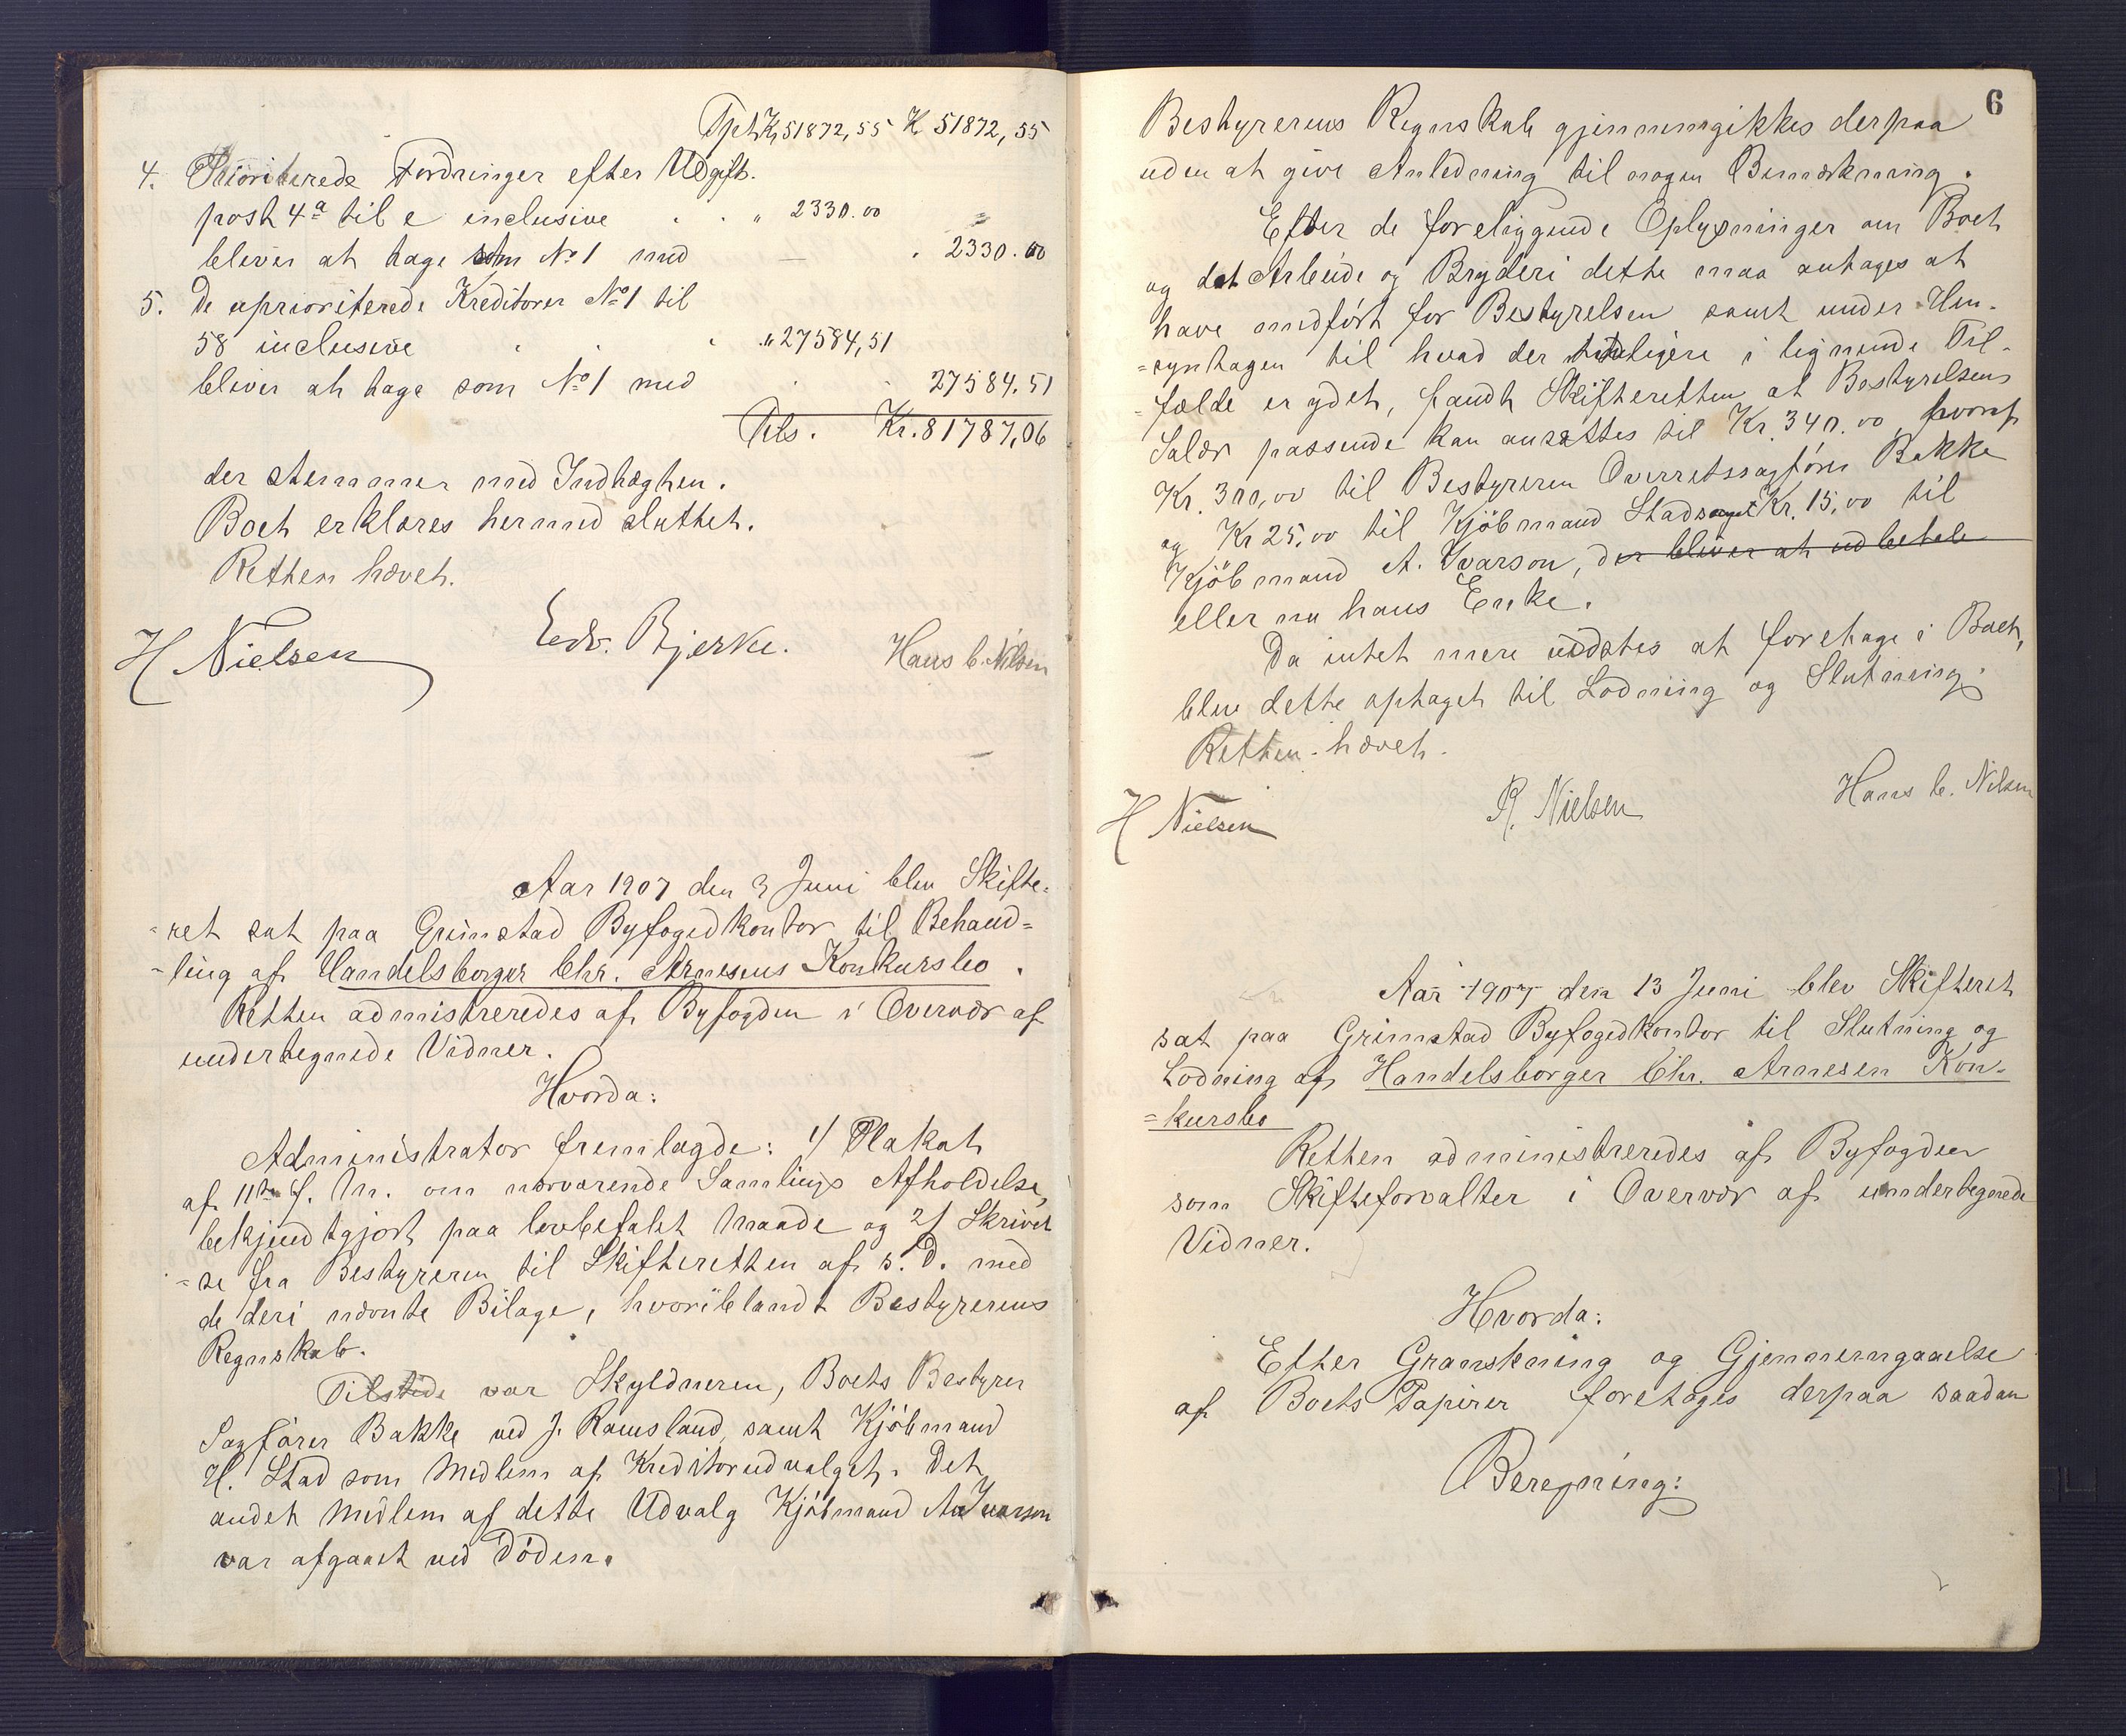 Tpt Kr. 51872,55 K 51872,55
4. Prioriterede Fordringer efter Udgift.
post 4ª til e inclusive . . " 2330.00
bliver at tage som No 1 med — . 2330.00
5. De uprioriterede Kreditorer No 1 til
58 inclusive . . . " 27584,51
bliver at tage som No 1 med . . 27584.51
Tils. Kr. 81787,06
der stemmer med Indtægten.
Boet erklæres hermed sluttet.
Retten hævet.
H Nielsen Edv. Bjerke. Hans C. Nilsen
Aar 1907 den 3 Juni blev Skifte-
-ret sat paa Grimstad Byfogedkontor til Behand=
-ling af Handelsborger Chr. Arnesens Konkursbo.
Retten administreredes af Byfogden i Overvær af
undertegnede Vidner.
Hvorda:
Administrator fremlagde: 1/ Plakat
af 11te f. M. om nærværende Samlings Afholdelse,
bekjendtgjort paa lovbefalet Maade og 2/ Skrivel
-se fra Bestyreren til Skifteretten af s. D. med
de deri nævnte Bilage, hvoriblandt Bestyrerens
Regnskab.
Tilstede var Skyldneren, Boets Bestyrer
Sagfører Bakke ved J. Ramsland, samt Kjøbmand
H. Stad som Medlem af Kreditorudvalget. Det
andet Medlem af dette Udvalg Kjøbmand A. Ivarson
var afgaaet ved Døden.
6
Bestyrerens Regnskab gjennemgikkes derpaa
uden at give Anledning til nogen Bemærkning.
Efter de foreliggende Oplysninger om Boet
og det Arbeide og Bryderi dette maa antages at
have medført for Bestyrelsen samt under Hen-
-syntagen til hvad der tidligere i lignende Til-
-fælde er ydet, fandt Skifteretten at Bestyrelsens
Salær passende kan ansættes til Kr. 340.00, hvoraf
Kr. 300,00 til Bestyreren Overretssagfører Bakke
og Kr 25,00 til Kjøbmand Stad samt Kr. 15,00 til
Kjøbmand A. Ivarson, der bliver at udbetale
eller nu hans Enke.
Da intet mere udstes at foretage i Boet,
blev dette optaget til Lodning og Slutning.
Retten hævet.
H Nielsen R. Nielsen Hans C. Nilsen
Aar 1907 den 13 Juni blev Skifteret
sat paa Grimstad Byfogedkontor til Slutning og
Lodning af Handelsborger Chr. Arnesen Kon-
=kursbo
Retten administreredes af Byfogden
som Skifteforvalter i Overvær af undertegnede
Vidner.
Hvorda:
Efter Granskning og Gjennemgaaelse
af Boets Papirer foretoges derpaa saadan
Beregning: